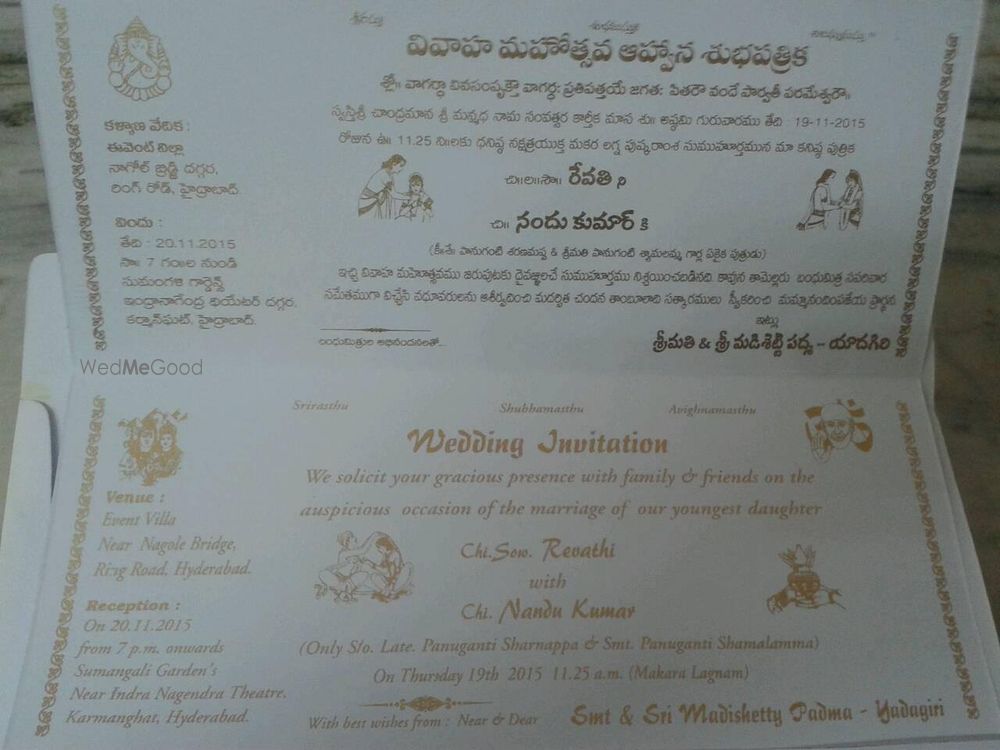 శ్రీరస్తు శుభమస్తు అవిఘ్నమస్తు
వివాహ మహోత్సవ ఆహ్వాన శుభపత్రిక
శ్లో॥ వాగర్థా వివసంపృక్తౌ వాగర్థః ప్రతిపత్తయే జగతః పితరౌ వందే పార్వతీ పరమేశ్వరౌ॥
స్వస్తిశ్రీ చాంద్రమాన శ్రీ మన్మధ నామ సంవత్సర కార్తీక మాస శు॥ అష్టమి గురువారము తేది : 19-11-2015
రోజున ఉ॥ 11.25 ని॥లకు ధనిష్ఠ నక్షత్రయుక్త మకర లగ్న పుష్కరాంశ సుముహూర్తమున మా కనిష్ఠ పుత్రిక
చి॥ల॥సౌ॥ రేవతి ని
చి॥ నందు కుమార్ కి
(కీ॥శే॥ పానుగంటి శరణప్ప & శ్రీమతి పానుగంటి శ్యామలమ్మ గార్ల ఏకైక పుత్రుడు)
ఇచ్చి వివాహ మహోత్సవము జరుపుటకు దైవజ్ఞులచే సుముహూర్తము నిశ్చయించబడినది. కావున తామెల్లరు బంధుమిత్ర సపరివార
సమేతముగా విచ్చేసి వధూవరులను ఆశీర్వదించి మదర్పిత చందన తాంబూలాది సత్కారములు స్వీకరించి మమ్మానందింపజేయ ప్రార్థన
ఇట్లు
శ్రీమతి & శ్రీ మడిశెట్టి పద్మ - యాదగిరి
బంధుమిత్రుల అభినందనలతో...
కళ్యాణ వేదిక :
ఈవెంట్ విల్లా
నాగోల్ బ్రిడ్జి దగ్గర,
రింగ్ రోడ్, హైద్రాబాద్.
విందు :
తేది : 20.11.2015
సా॥ 7 గం॥ల నుండి
సుమంగళి గార్డెన్స్
ఇంద్రానాగేంద్ర థియేటర్ దగ్గర,
కర్మాన్‌ఘట్, హైద్రాబాద్.
WedMeGood
Srirasthu Shubhamasthu Avighnamasthu
Wedding Invitation
We solicit your gracious presence with family & friends on the
auspicious occasion of the marriage of our youngest daughter
Chi.Sow. Revathi
with
Chi. Nandu Kumar
(Only S/o. Late. Panuganti Sharnappa & Smt. Panuganti Shamalamma)
On Thursday 19th 2015 11.25 a.m. (Makara Lagnam)
With best wishes from : Near & Dear
Smt & Sri Madishetty Padma - Yadagiri
Venue :
Event Villa
Near Nagole Bridge,
Ring Road, Hyderabad.
Reception :
On 20.11.2015
from 7 p.m. onwards
Sumangali Garden's
Near Indra Nagendra Theatre,
Karmanghat, Hyderabad.